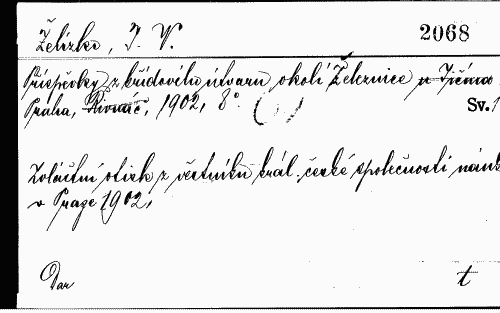 Želízko, J. V. 2068
Příspěvky z křídového útvaru okolí Železnice u Jičína
Praha, Rivnáč, 1902, 8°. ( ) Sv. 1
Zvláštní otisk z věstníku král. české společnosti náuk
v Praze 1902,
Dar t